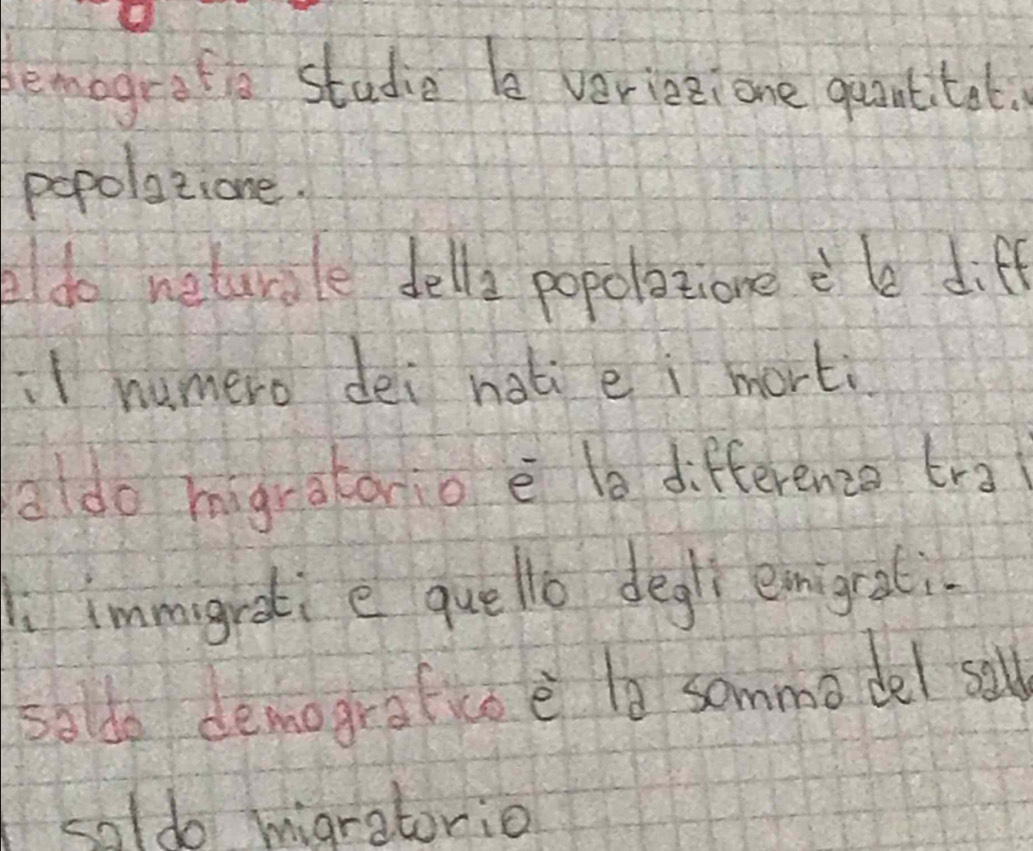 demografia studia la variazione quantitat
popolazione.
aldo naturale della popolazione è la diff
il numero dei nati e i morti
aldo migratorio è la differenza tra
li immigrati e quello degli emigrati.
saldo demografico è la somma del sald
saldo migratorio